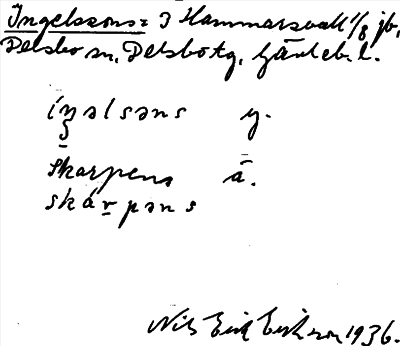 Ingelssons= I Hammarsvall 1/8 jb,
Delsbo sn, Delsbo tg, Gävleb. l.
iŋəlsəns y.
Skarpens ä.
skárpəns
Nils Erik Eriksson 1936.